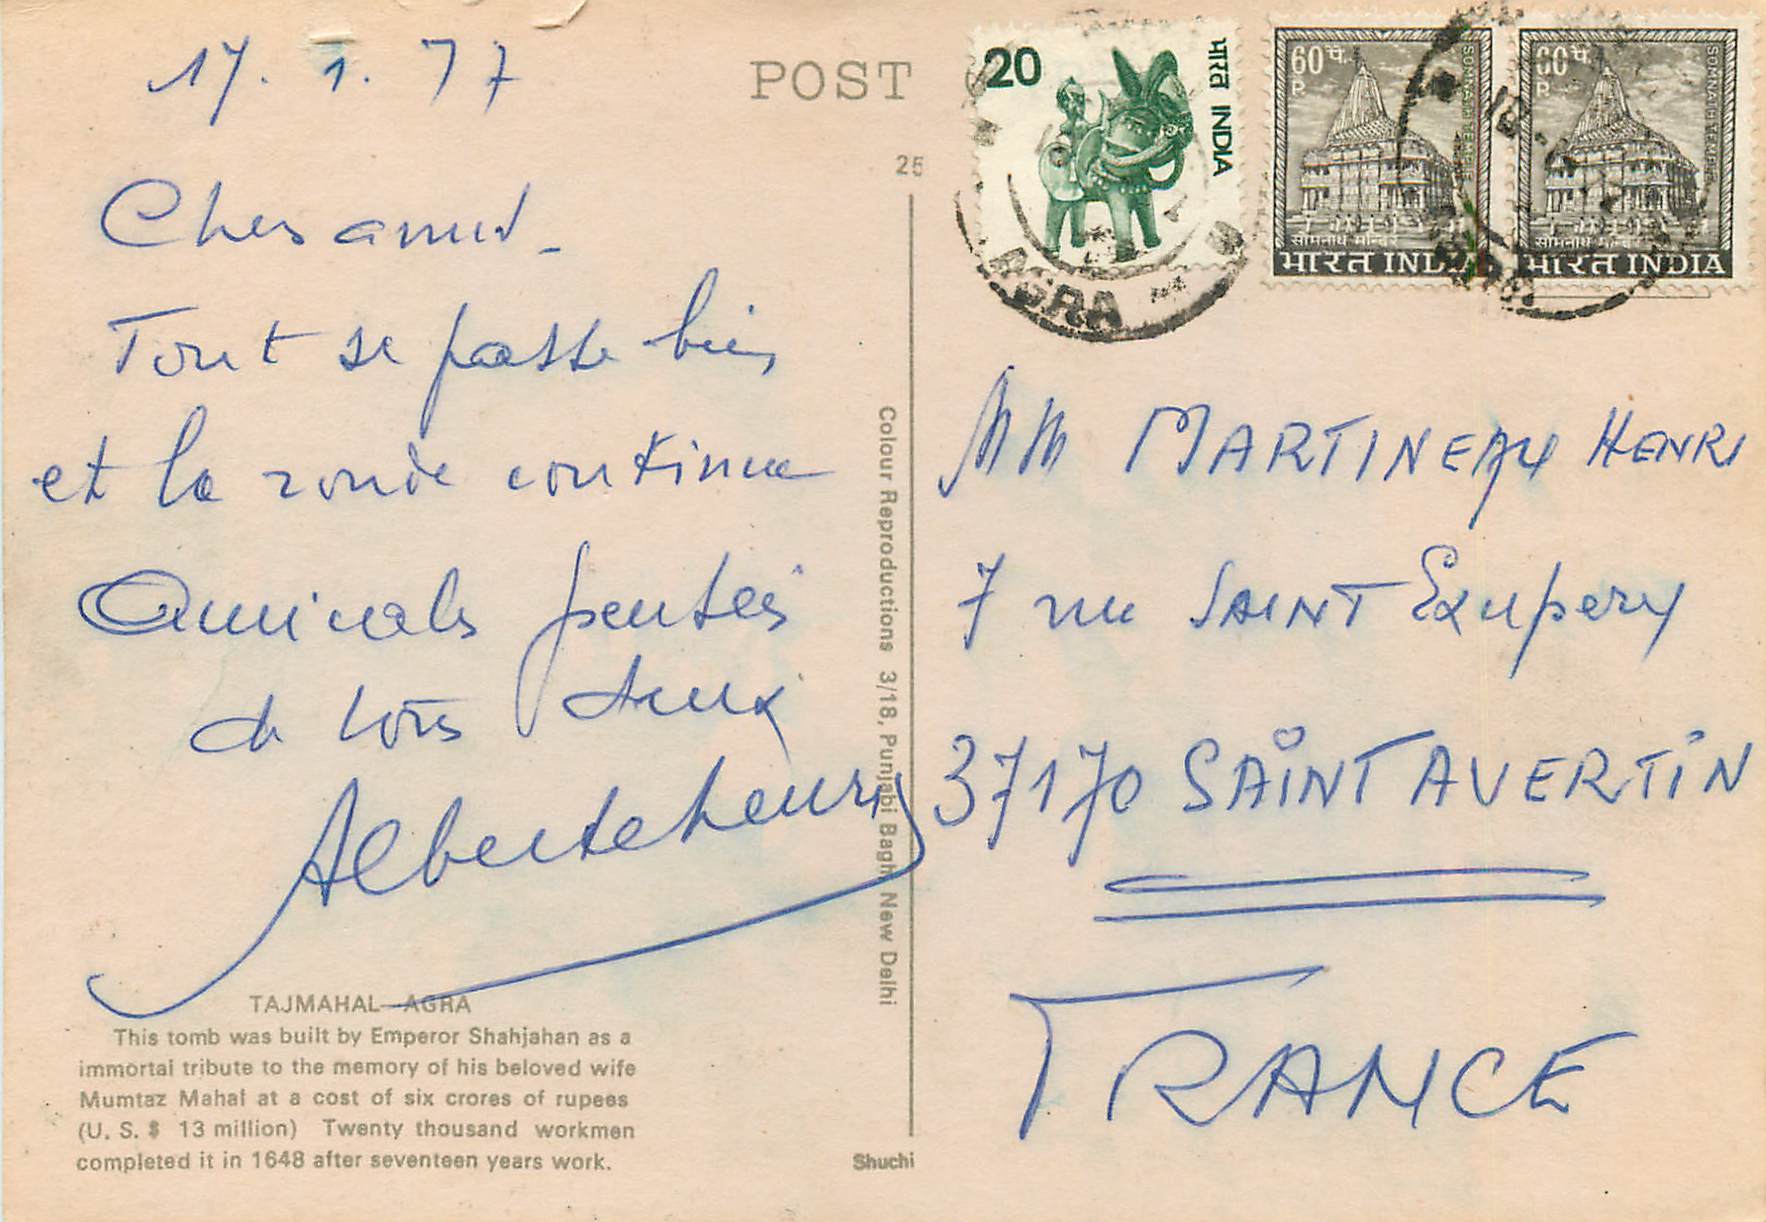 17. 1. 77
Chers amis.
Tout se passe bien
et la ronde continue
Amicales pensées
de tous deux
POST
25
20
भारत INDIA
AGRA
60 प.
P.
SOMNATH TEMPLE
सोमनाथ मन्दिर
भारत INDIA
60 प.
P.
SOMNATH TEMPLE
सोमनाथ मन्दिर
भारत INDIA
MM MARTINEAU HENRI
7 rue SAINT Exupery
37170 SAINT AVERTIN
FRANCE
Colour Reproductions 3/18, Punjabi Bagh New Delhi
TAJMAHAL—AGRA
This tomb was built by Emperor Shahjahan as a
immortal tribute to the memory of his beloved wife
Mumtaz Mahal at a cost of six crores of rupees
(U. S. $ 13 million) Twenty thousand workmen
completed it in 1648 after seventeen years work.
Shuchi